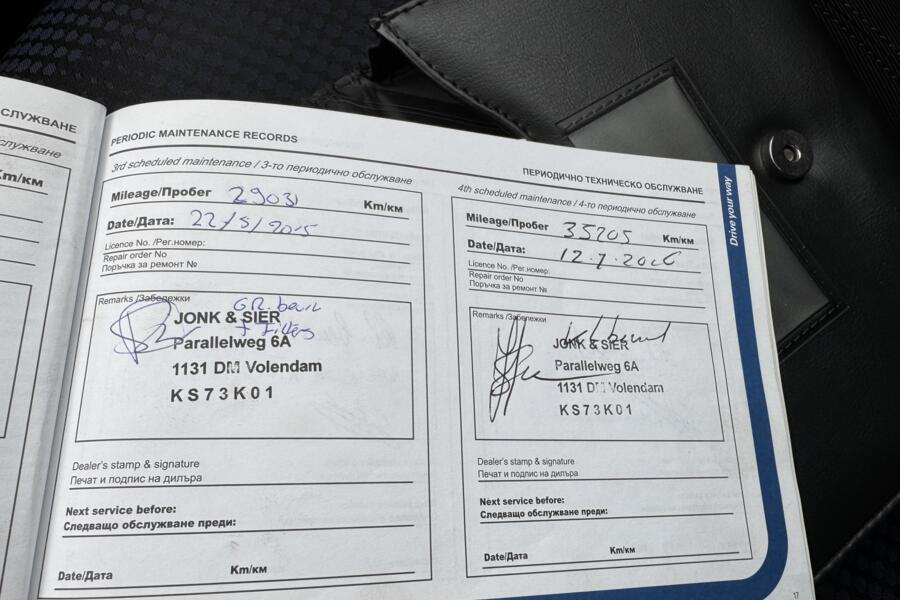 СЛУЖВАНЕ
служване
Km/км
PERIODIC MAINTENANCE RECORDS
3rd scheduled maintenance / 3-то периодично обслужване
Mileage/Пробег 29031 Km/км
Date/Дата: 22/5/2015
Licence No. /Рег.номер:
Repair order No
Поръчка за ремонт №
Remarks /Забележки
GR. beurt
+ Filters
JONK & SIER
Parallelweg 6A
1131 DM Volendam
KS73K01
Dealer's stamp & signature
Печат и подпис на дилъра
Next service before:
Следващо обслужване преди:
Date/Дата Km/км
ПЕРИОДИЧНО ТЕХНИЧЕСКО ОБСЛУЖВАНЕ
4th scheduled maintenance / 4-то периодично обслужване
Mileage/Пробег 35205 Km/км
Date/Дата: 12.7.2016
Licence No. /Рег.номер:
Repair order No
Поръчка за ремонт №
Remarks /Забележки
JONK & SIER
Parallelweg 6A
1131 DM Volendam
KS73K01
Dealer's stamp & signature
Печат и подпис на дилъра
Next service before:
Следващо обслужване преди:
Date/Дата Km/км
Drive your way
17